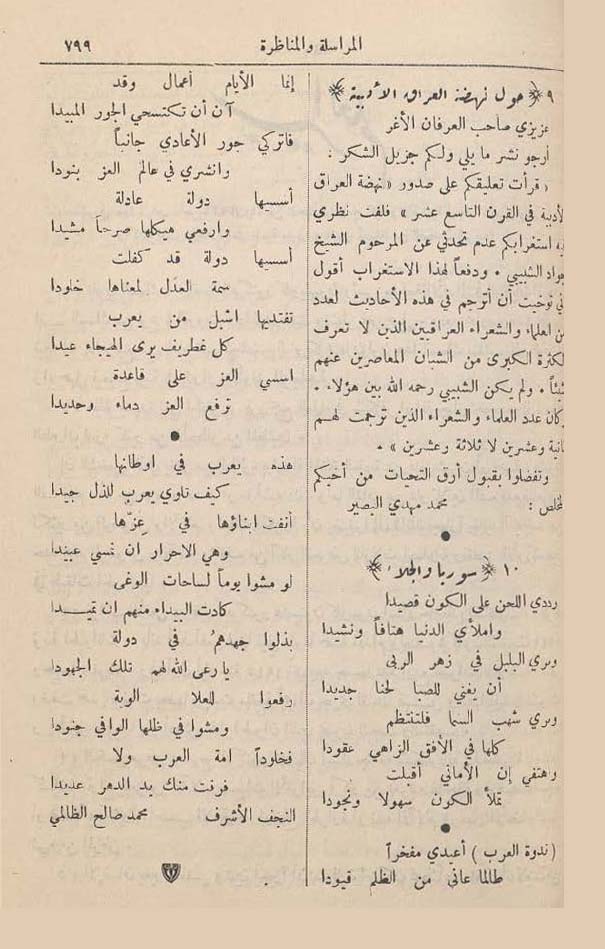 المراسلة والمناظرة
٧٩٩
٩ ﴿ حول نهضة العراق الأدبية ﴾
عزيزي صاحب العرفان الأغر
أرجو نشر ما يلي ولكم جزيل الشكر :
« قرأت تعليقكم على صدور «نهضة العراق
الأدبية في القرن التاسع عشر» فلفت نظري
فيه استغرابكم عدم تحدثي عن المرحوم الشيخ
جواد الشبيبي . ودفعاً لهذا الاستغراب أقول
إني توخيت أن أترجم في هذه الأحاديث لعدد
من العلماء والشعراء العراقيين الذين لا تعرف
الكثرة الكبرى من الشبان المعاصرين عنهم
شيئاً . ولم يكن الشبيبي رحمه الله بين هؤلاء .
وكان عدد العلماء والشعراء الذين ترجمت لهم
ثمانية وعشرين لا ثلاثة وعشرين » .
وتفضلوا بقبول أرق التحيات من أخيكم
المخلص : محمد مهدي البصير
١٠ ﴿ سوريا والجلاء ﴾
رددي اللحن على الكون قصيدا
واملأي الدنيا هتافاً ونشيدا
ومري البلبل في زهر الربى
أن يغني للصبا لحنا جديدا
ومري شهب السما فلتنتظم
كلها في الأفق الزاهي عقودا
واهتفي إن الأماني أقبلت
تملأ الكون سهولا ونجودا
(ندوة العرب) أعيدي مفخراً
طالما عانى من الظلم قيودا
إنما الأيام أعمال وقد
آن أن تكتسحي الجور المبيدا
فاتركي جور الأعادي جانباً
وانشري في عالم العز بنودا
أسسيها دولة عادلة
وارفعي هيكلها صرحاً مشيدا
أسسيها دولة قد كفلت
سمة العدل لمعناها خلودا
تفتديها اشبل من يعرب
كل غطريف يرى الهيجاء عيدا
اسسي العز على قاعدة
ترفع العز دماء وحديدا
هذه يعرب في اوطانها
كيف تلوي يعرب للذل جيدا
أنفت ابناؤها في عزّها
وهي الاحرار ان تمسي عبيدا
لو مشوا يوماً لساحات الوغى
كادت البيداء منهم ان تميدا
بذلوا جهدهم في دولة
يا رعى الله لهم تلك الجهودا
رفعوا للعلا الوية
ومشوا في ظلها الوافي جنودا
فخلوداً امة العرب ولا
فرقت منك يد الدهر عديدا
النجف الأشرف محمد صالح الظالمي